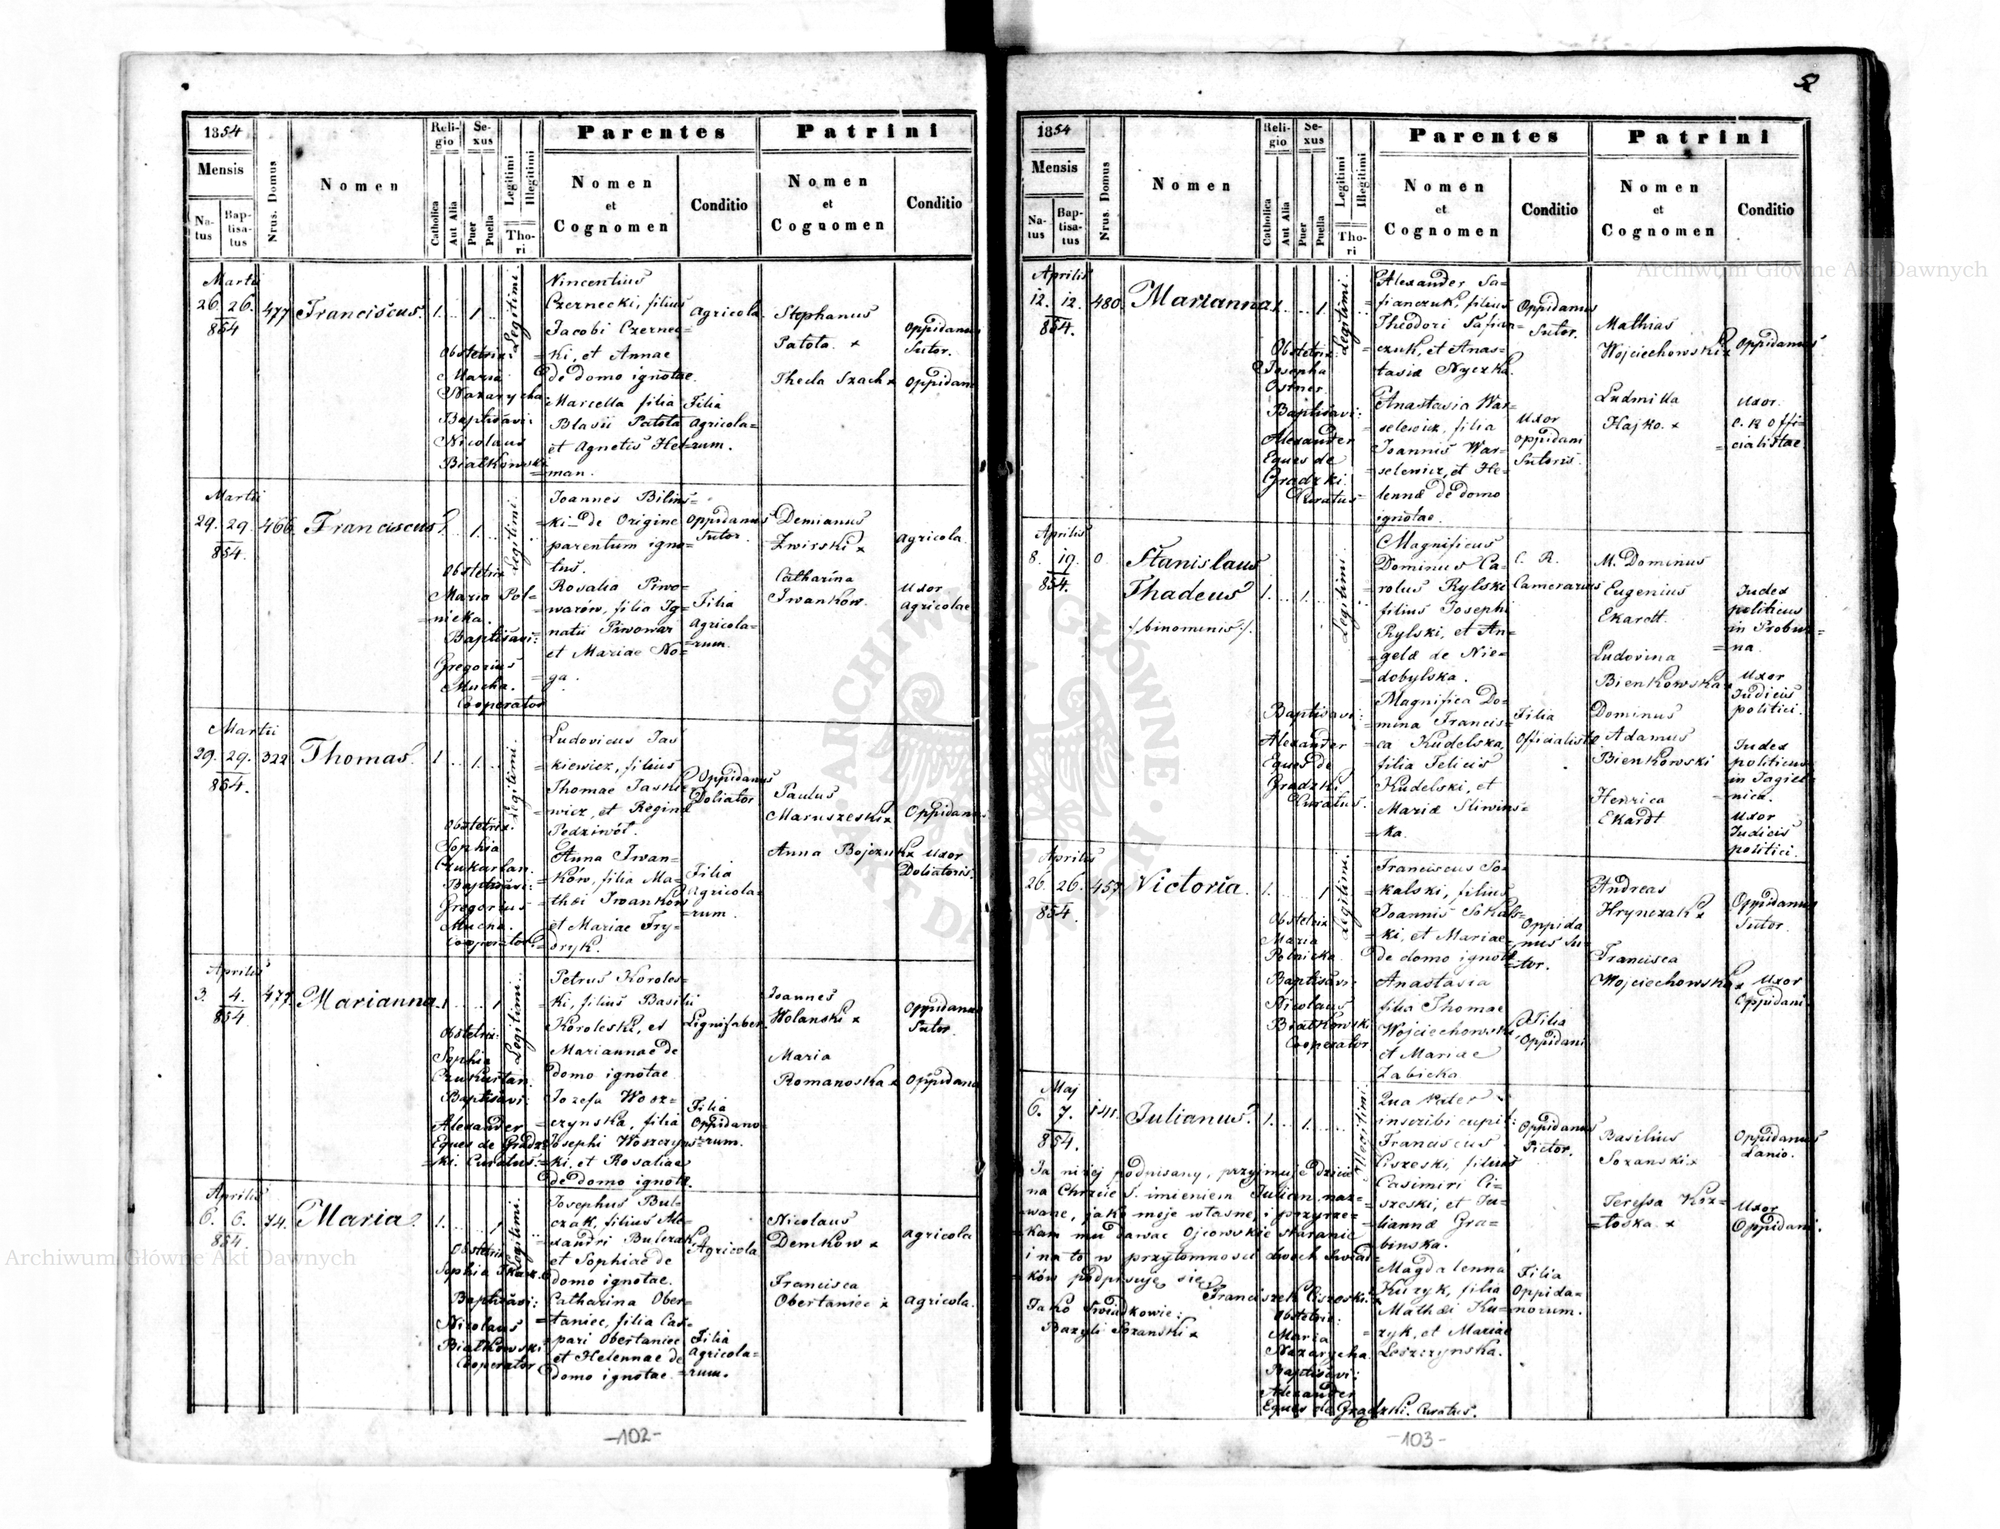 1854
Mensis
Natus
Baptisatus
Nrus. Domus
Nomen
Religio
Catholica
Aut Alia
Sexus
Puer
Puella
Legitimi
Illegitimi
Thori
Parentes
Nomen
et
Cognomen
Conditio
Patrini
Nomen
et
Cognomen
Conditio
Martii
26. 26. 477 Franciscus. 1. 1. Legitimi.
854
Obstetrix
Maria
Nazarycha
Baptisavi:
Nicolaus
Białkowski
Vincentius
Czernecki, filius
Jacobi Czernec=
=ki, et Annae
de domo ignotae.
Marcella filia
Blasii Patota
et Agnetis Het=
=man.
Agricola
Filia
Agricola=
=rum.
Stephanus
Patota. x
Thecla Szach x
Oppidanus
Sutor.
Oppidana
Martii
29. 29. 466 Franciscus 1. 1. Legitimi.
854.
Obstetrix
Maria Pol=
=nicka.
Baptisavi:
Gregorius
Mucha.
Cooperator
Joannes Bilins=
=ki de Origine
parentum igno=
=tus.
Rosalia Piwo=
=warów, filia Ig=
=natii Piwowar
et Mariae No=
=ga.
Oppidanus
Sutor.
Filia
Agricola=
=rum.
Demianus
Zwirski x
Catharina
Iwanków.
Agricola
Uxor
Agricolae
Martii
29. 29. 322 Thomas. 1. 1. Legitimi.
854.
Obstetrix.
Sophia
Czukartan.
Baptisavi:
Gregorius
Mucha.
Cooperator.
Ludovicus Jas
=kiewicz, filius
Thomae Jaskie
=wicz, et Reginae
Podziwót.
Anna Iwan=
=ków, filia Ma=
=thæi Iwanków
et Mariae Fry=
=dryk.
Oppidanus
Doliator
Filia
Agricola=
=rum.
Paulus
Maruszeski x
Anna Bojczuk x
Oppidanus
Uxor
Doliatoris.
Aprilis
3. 4. 477. Marianna 1. 1. Legitimi.
854
Obstetrix
Sophia
Czukartan.
Baptisavi:
Alexander
Eques de Gradz=
=ki. Curatus.
Petrus Koroles=
ki, filius Basilii
Koroleski, et
Mariannae de
domo ignotae.
Jozefa Wosz=
czynska, filia
Josephi Woszczyns=
=ki, et Rosaliae
de domo ignotæ.
Lignifaber
Filia
Oppidano
=rum.
Joannes
Wolanski x
Maria
Romanoska x
Oppidanus
Sutor
Oppidana
Aprilis
6. 6. 74. Maria 1. 1. Legitimi.
854
Obstetrix
Sophia
Baptisavi:
Nicolaus
Białkowski
Cooperator
Josephus Bul=
czak, filius Ale=
xandri Bulczak,
et Sophiae de
domo ignotae.
Catharina Ober=
=taniec, filia Cas=
=pari Obertaniec
et Helennae de
domo ignotae.
Agricola
Filia
Agricola=
=rum.
Nicolaus
Demków x
Francisca
Obertaniec x
Agricola
Agricola.
-102-
52
1854
Mensis
Natus
Baptisatus
Nrus. Domus
Nomen
Religio
Catholica
Aut Alia
Sexus
Puer
Puella
Legitimi
Illegitimi
Thori
Parentes
Nomen
et
Cognomen
Conditio
Patrini
Nomen
et
Cognomen
Conditio
Aprilis
12. 12. 480. Marianna 1. 1. Legitimi.
854.
Obstetrix
Josepha
Ostner
Baptisavi:
Alexander
Eques de
Gradzki
Curatus
Alexander Sa=
fianczuk, filius
Theodori Safian=
czuk, et Anas=
tasiæ Nyczka.
Anastasia War=
=selewicz, filia
Joannis War=
selewicz, et He=
lennæ de domo
ignotae.
Oppidanus
Sutor.
Uxor
Oppidani
Sutoris.
Mathias
Wojciechowski x
Ludmilla
Hajko. x
Oppidanus
Uxor
C. R. Offi=
=cialistae.
Aprilis
8. 19. 0 Stanislaus
854. Thadeus 1. 1. Legitimi.
/:binomenis:/
Baptisavi:
Alexander
Eques de
Gradzki
Curatus.
Magnificus
Dominus Ca=
rolus Rylski
filius Josephi
Rylski, et An=
=gelæ de Nie=
=dobylska.
Magnifica Do=
mina Francis=
ca Kudelska,
filia Felicis
Kudelski, et
Mariæ Sliwins=
=ka.
C. R.
Camerarius
Filia
Officialistæ
M. Dominus
Eugenius
Ekardt.
Ludovina
Bienkowska x
Dominus
Adamus
Bienkowski
Henrica
Ekardt
Judex
politicus
in Probus=
=na
Uxor
Judicis
politici.
Judex
politicus
in Jagiel=
=nica.
Uxor
Judicis
politici.
Aprilis
26. 26. 457 Victoria. 1. 1 Legitimi.
854.
Obstetrix
Maria
Polnicka.
Baptisavi:
Nicolaus
Białkowski
Cooperator
Franciscus So=
=kalski, filius
Joannis Sokals=
=ki, et Mariae
de domo ignotæ
Anastasia
filia Thomae
Wojciechowski,
et Mariae
Zabicka
Oppida
=nus Su=
=tor.
Filia
Oppidani
Andreas
Hrynczak x
Francisca
Wojciechowska x
Oppidanus
Sutor.
Uxor
Oppidani.
Maj
6. 7. 141. Julianus. 1. 1. Illegitimi.
854.
Ja niżej podpisany, przyjmuję dziecię
na Chrzcie S. imieniem Julian naz=
wane, jako moje własne, i przyrze=
kam mu dawać Ojcowskie staranie
i na to w przytomności dwoch Swiad=
ków podpisuję się
Franciszek Ciszeski. x
Jako Swiadkowie:
Bazyli Sozanski x
Obstetrix:
Maria
Nazarycha
Baptisavi:
Alexander
Eques de Gradzki. Curatus.
Qua Pater
inscribi cupit:
Franciscus
Ciszeski, filius
Casimiri Ci=
szeski, et Ju=
liannæ Gra=
binska.
Magdalenna
Kuzyk, filia
Mathæi Ku=
zyk, et Mariae
Leszczynska.
Oppidanus
Pictor.
Filia
Oppida=
norum.
Basilius
Sozanski x
Teressa Kix=
=toska. x
Oppidanus
Lanio.
Uxor
Oppidani.
-103-
Archiwum Główne Akt Dawnych
Archiwum Główne Akt Dawnych
ARCHIWUM GŁÓWNE AKT DAWNYCH